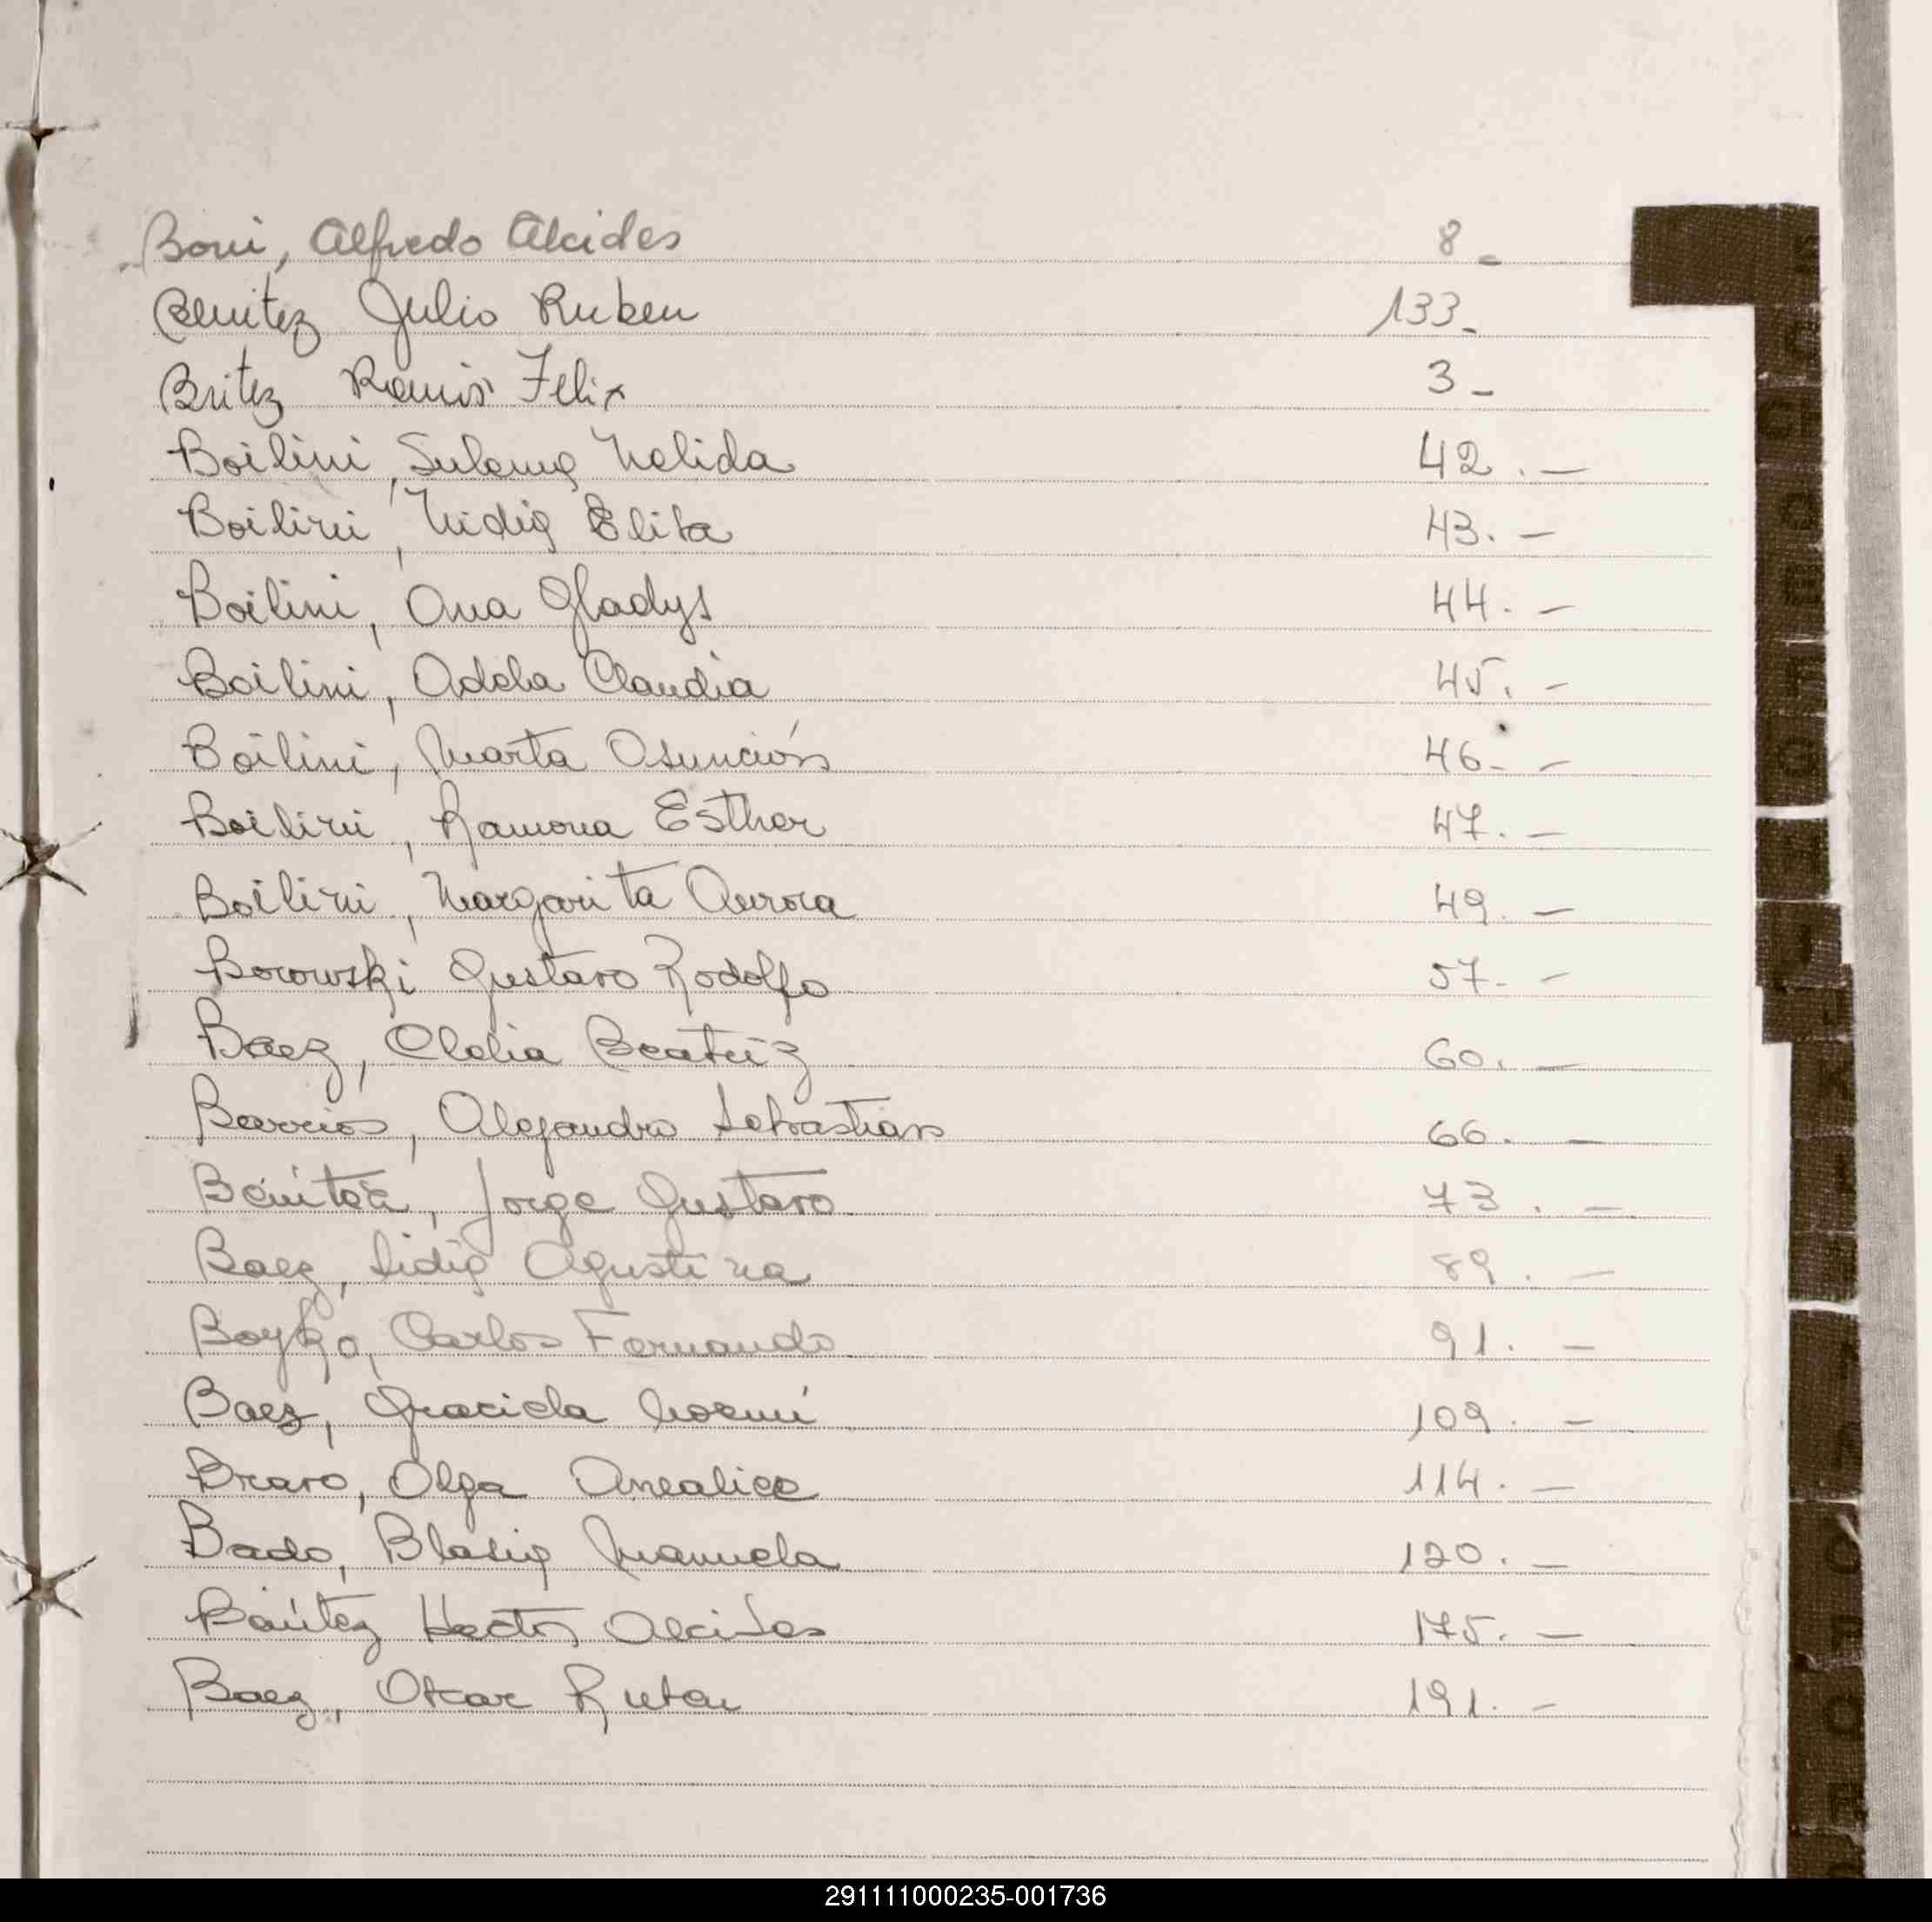 Boni, Alfredo Alcides 8_
Benitez Julio Ruben 133_
Britez Ramón Felix 3_
Boilini, Sulema Nelida 42. —
Boilini, Nidia Elita 43. —
Boilini, Ana Gladys 44. —
Boilini, Adela Claudia 45. —
Boilini, Marta Asunción 46. —
Boilini, Ramona Esther 47. —
Boilini, Margarita Aurora 49. —
Borowski Gustavo Rodolfo 57. —
Baez, Clelia Beatriz 60. —
Barrios, Alejandro Sebastian 66. —
Bénitez, Jorge Gustavo 73. —
Baez, Lidia Agustina 89. —
Boyko, Carlos Fernando 91. —
Baez, Graciela Noemí 109. —
Bravo, Olga 114. —
Bado, Blasia Manuela 120. —
Benítez Hector Alcides 175. —
Baez, Oscar Ruben 191. —
291111000235-001736